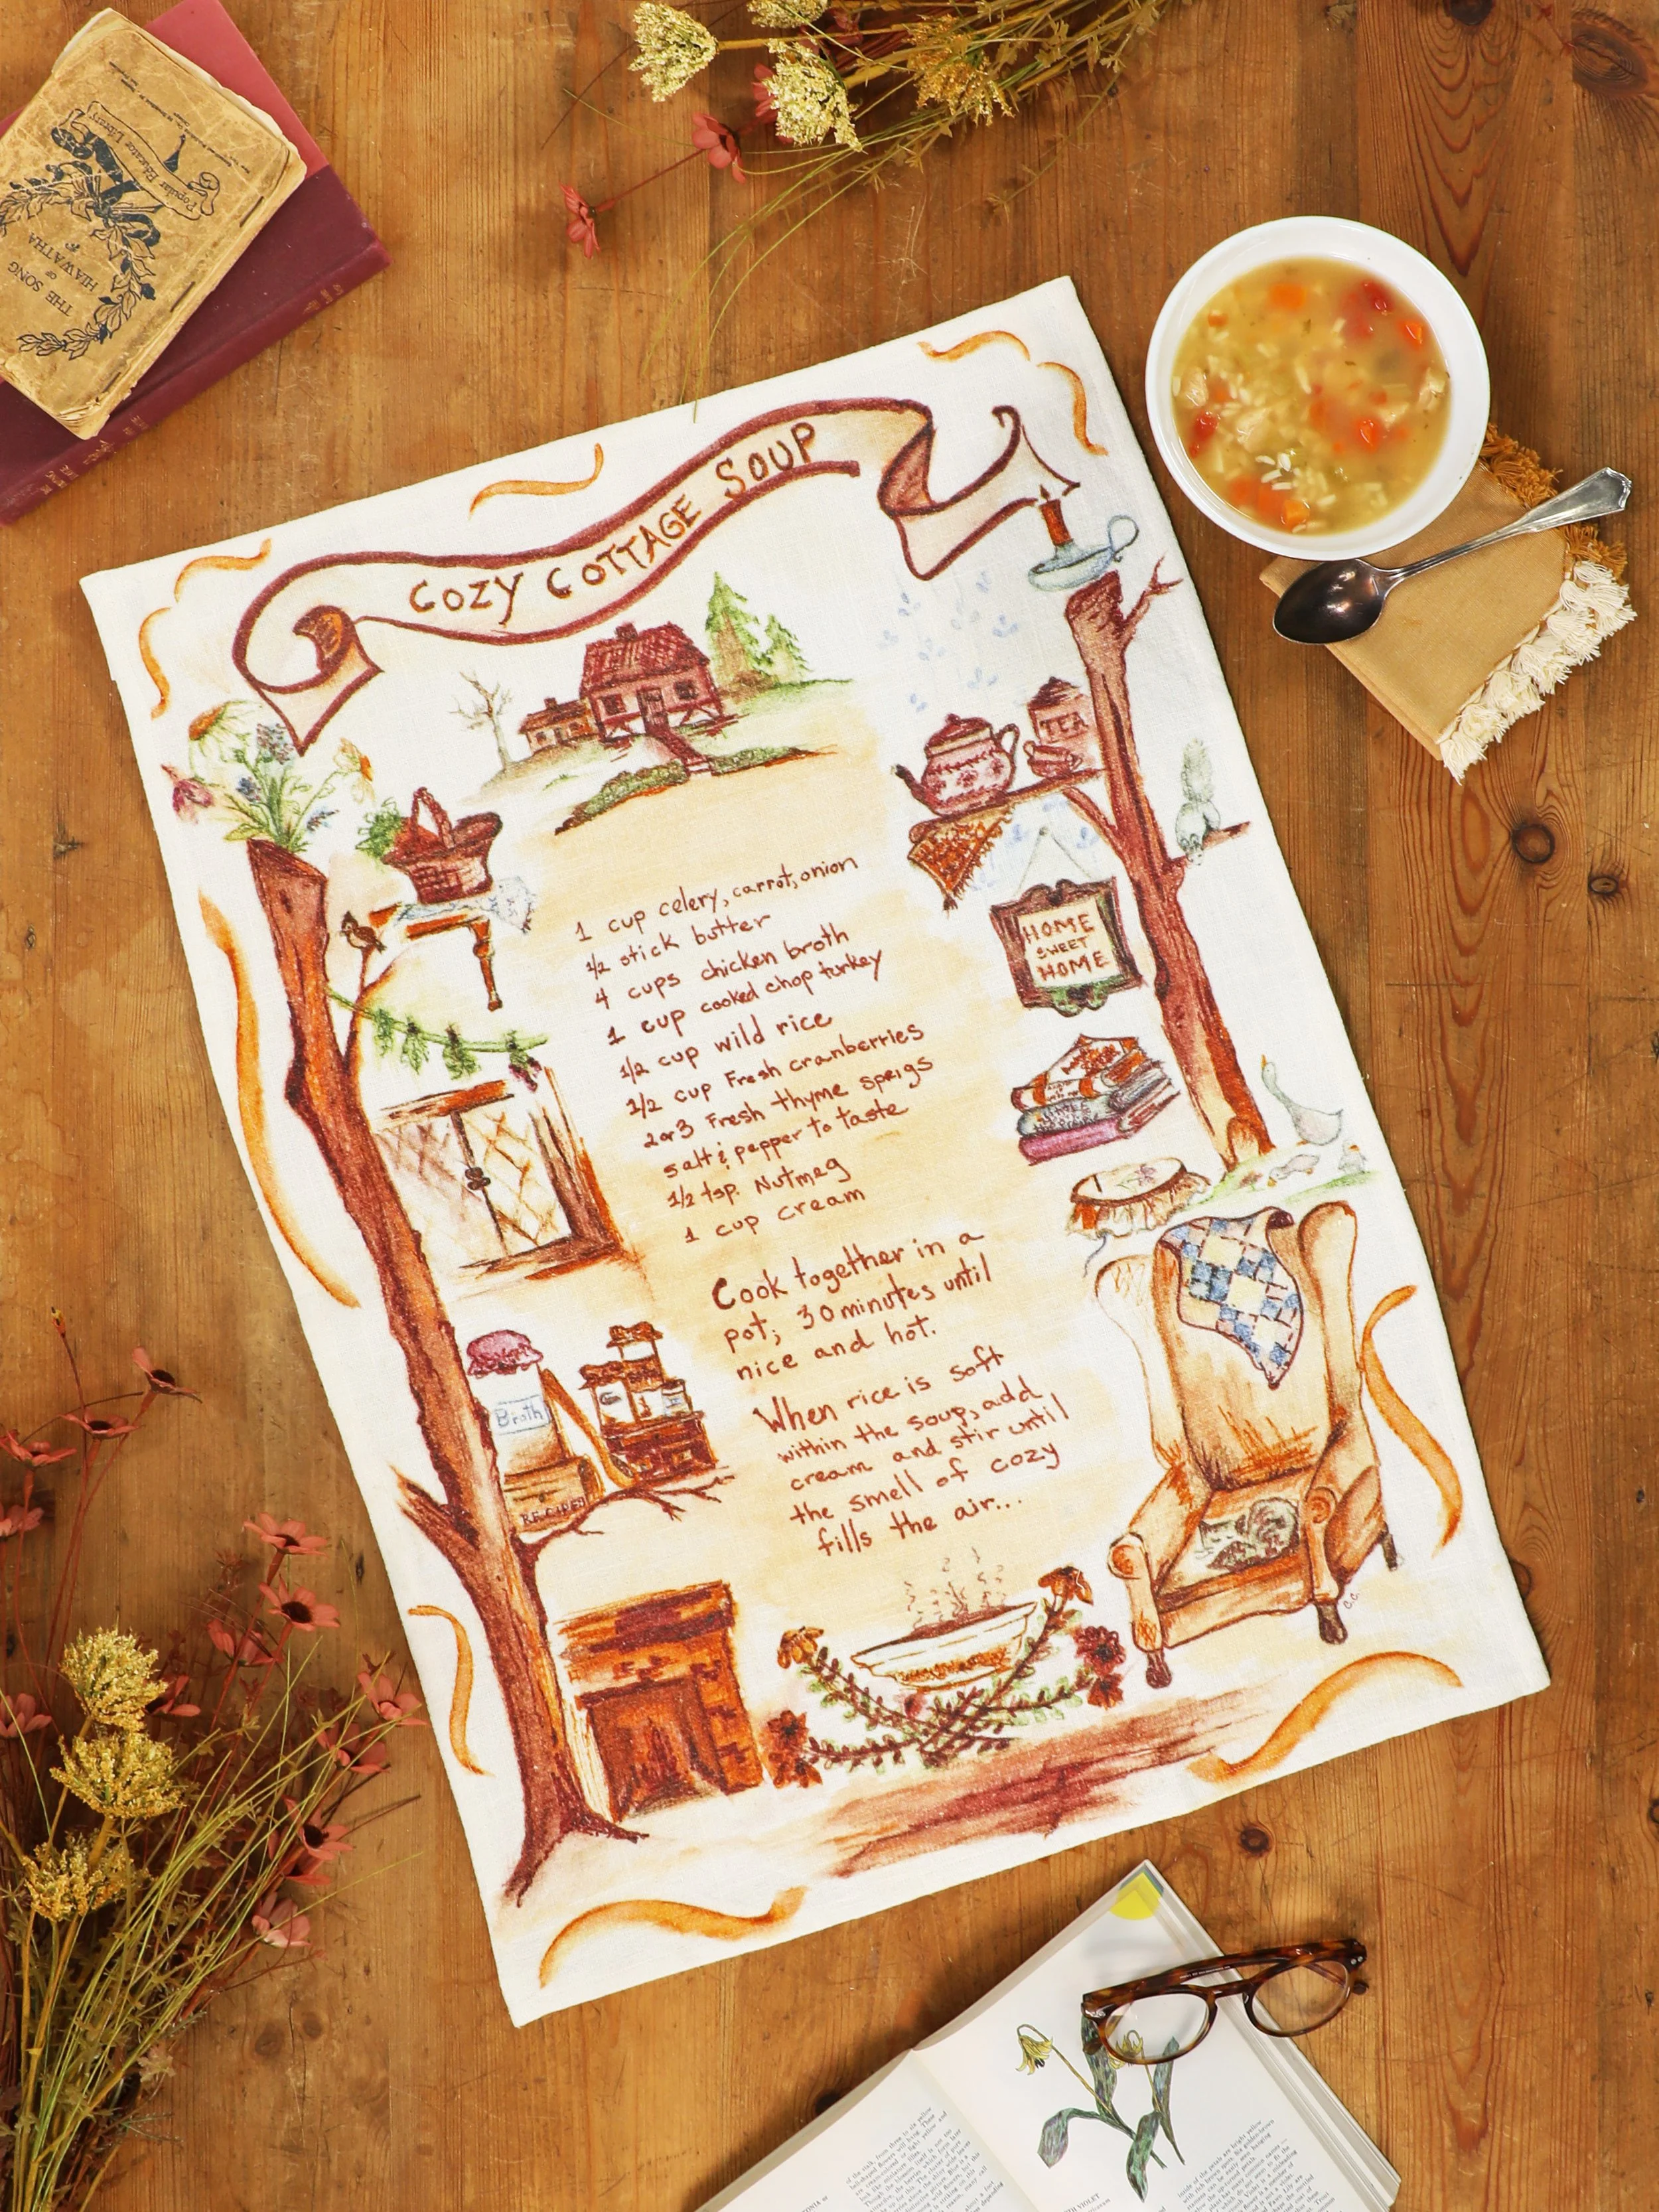 COZY COTTAGE SOUP
1 cup celery, carrot, onion
1/2 stick butter
4 cups chicken broth
1 cup cooked chop turkey
1/2 cup wild rice
1/2 cup Fresh cranberries
2 or 3 Fresh thyme sprigs
salt & pepper to taste
1/2 tsp. Nutmeg
1 cup cream
Cook together in a
pot; 30 minutes until
nice and hot.
When rice is soft
within the soup, add
cream and stir until
the smell of cozy
fills the air...
TEA
HOME
SWEET
HOME
Broth
RECIPES
C.C.
Popular Educator Library
THE SONG
OF
HIAWATHA